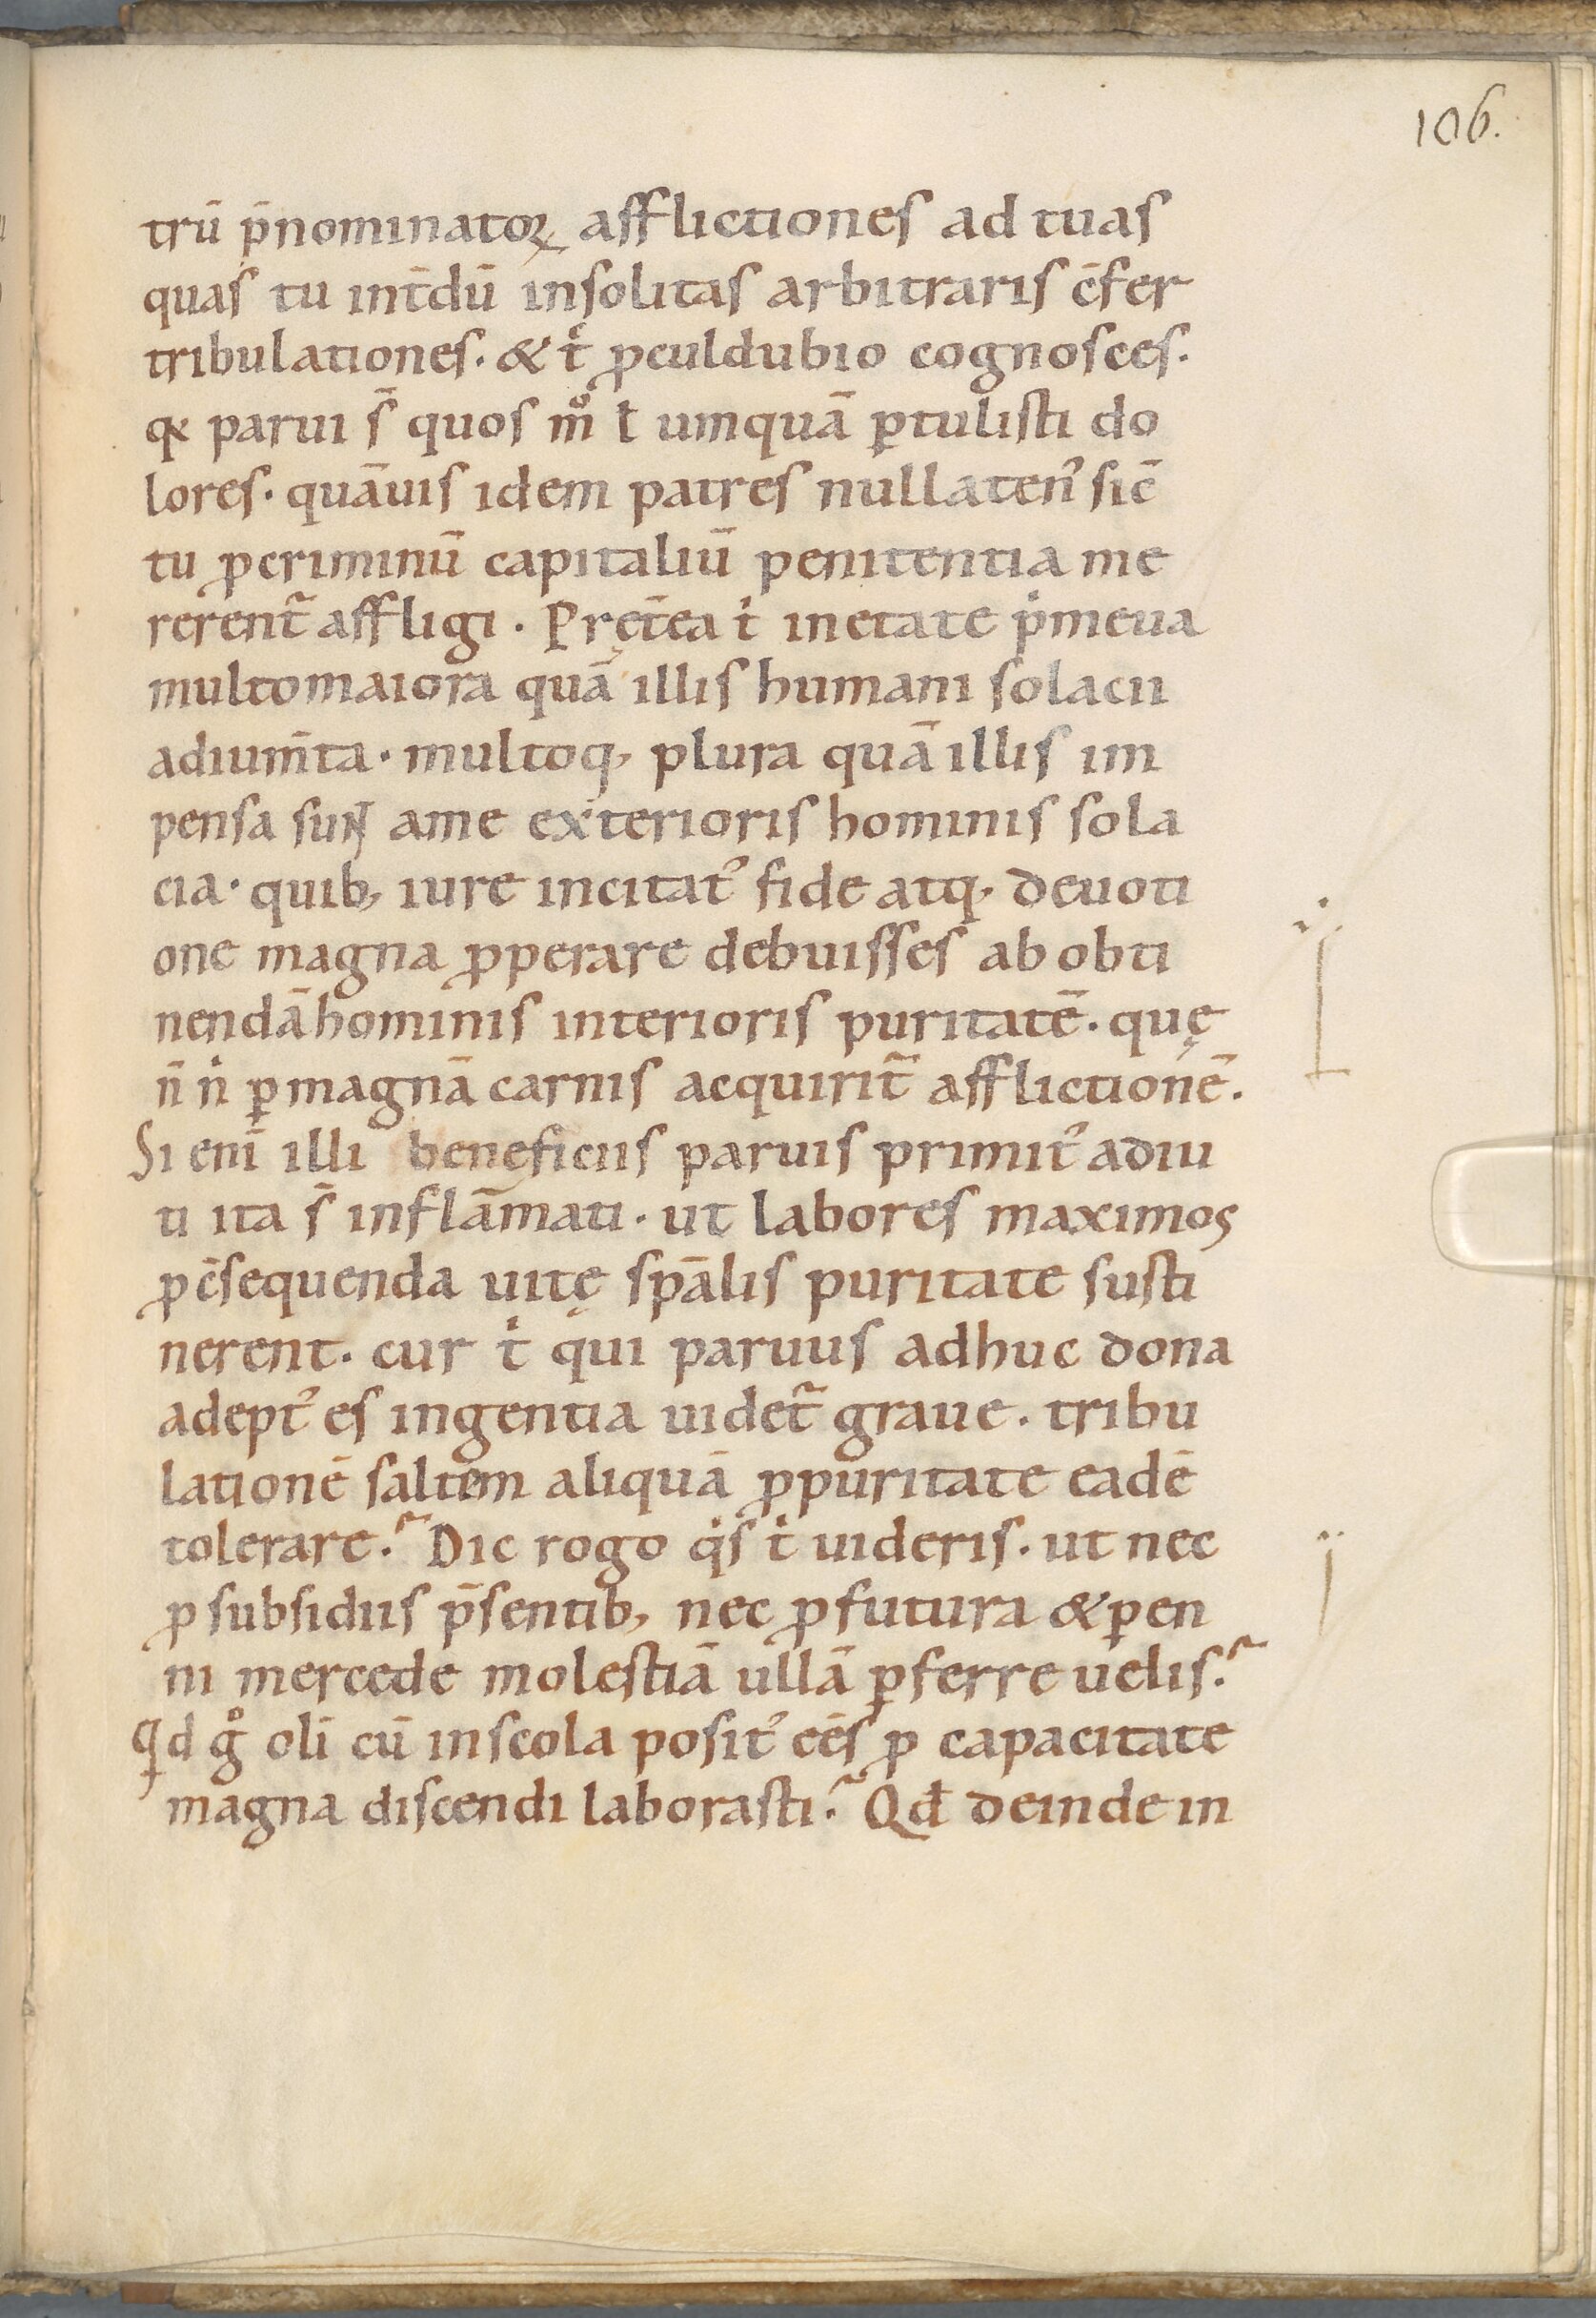 106.
trū p̄nominatoꝝ afflictiones ad tuas
quas tu int̄dū insolitas arbitraris c̄fer
tribulationes. & tͥ ꝓculdubio cognosces.
qꝫ parui s̄ quos mͦ ł umquā ꝑtulisti do
lores. quāuis idem patres nullaten᾽ sic̄
tu ꝓcriminū capitaliū penitentia me
rerent̄ affligi. Pręt̄ea tͥ inetate pͥmeua
multomaiora quā illis humani solacii
adium̄ta. multoq, plura quā illis im
pensa sunt ame exterioris hominis sola
cia. quib, iure incitat᾽ fide atq, deuoti
one magna ꝓperare debuisses ab obti
nendā hominis interioris puritatē. quę
n̄ nͥ ꝑmagnā carnis acquirit̄ afflictionē.
Si enī illi beneficiis paruis primit᾽ adiu
ti ita s̄ inflāmati. ut labores maximos
ꝓc̄sequenda uitę spālis puritate susti
nerent. cur tͥ qui paruus adhuc dona
adept᾽ es ingentia uidet̄ graue. tribu
lationē saltem aliquā ꝓpuritate eadē
tolerare.᾽ Dic rogo qͥs tͥ uideris. ut nec
ꝓ subsidiis p̄sentib, nec ꝓfutura & ꝑen
ni mercede molestiā ullā ꝑferre uelis.᾽
Qͥd gͦ olī cū inscola posit᾽ eēs ꝓ capacitate
magna discendi laborasti.᾽ Qđ deinde in